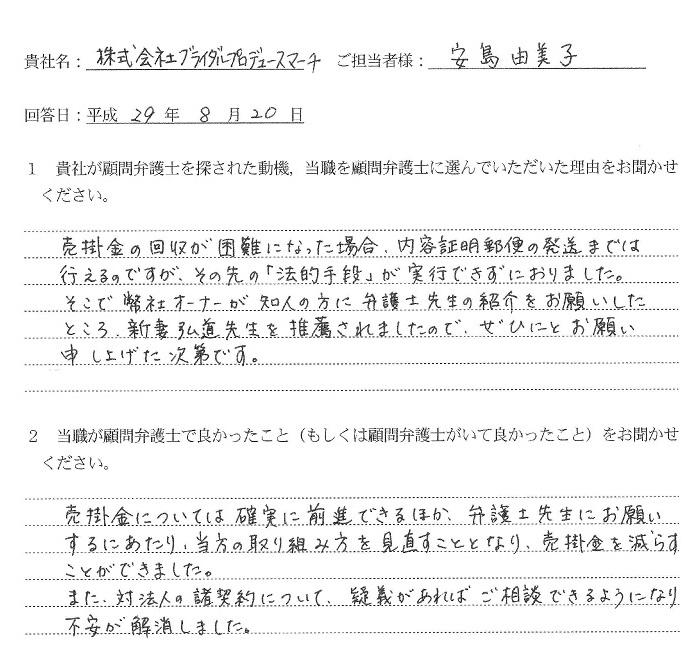 貴社名：株式会社ブライダルプロデュースマーチ　ご担当者様：安島由美子
回答日：平成 29 年 8 月 20 日
１　貴社が顧問弁護士を探された動機，当職を顧問弁護士に選んでいただいた理由をお聞かせ
ください。
売掛金の回収が困難になった場合、内容証明郵便の発送までは
行えるのですが、その先の「法的手段」が実行できずにおりました。
そこで弊社オーナーが知人の方に弁護士先生の紹介をお願いした
ところ、新妻弘道先生を推薦されましたので、ぜひにとお願い
申し上げた次第です。
２　当職が顧問弁護士で良かったこと（もしくは顧問弁護士がいて良かったこと）をお聞かせ
ください。
売掛金については確実に前進できるほか、弁護士先生にお願い
するにあたり、当方の取り組み方を見直すこととなり、売掛金を減らす
ことができました。
また、対法人の諸契約について、疑義があればご相談できるようになり
不安が解消しました。